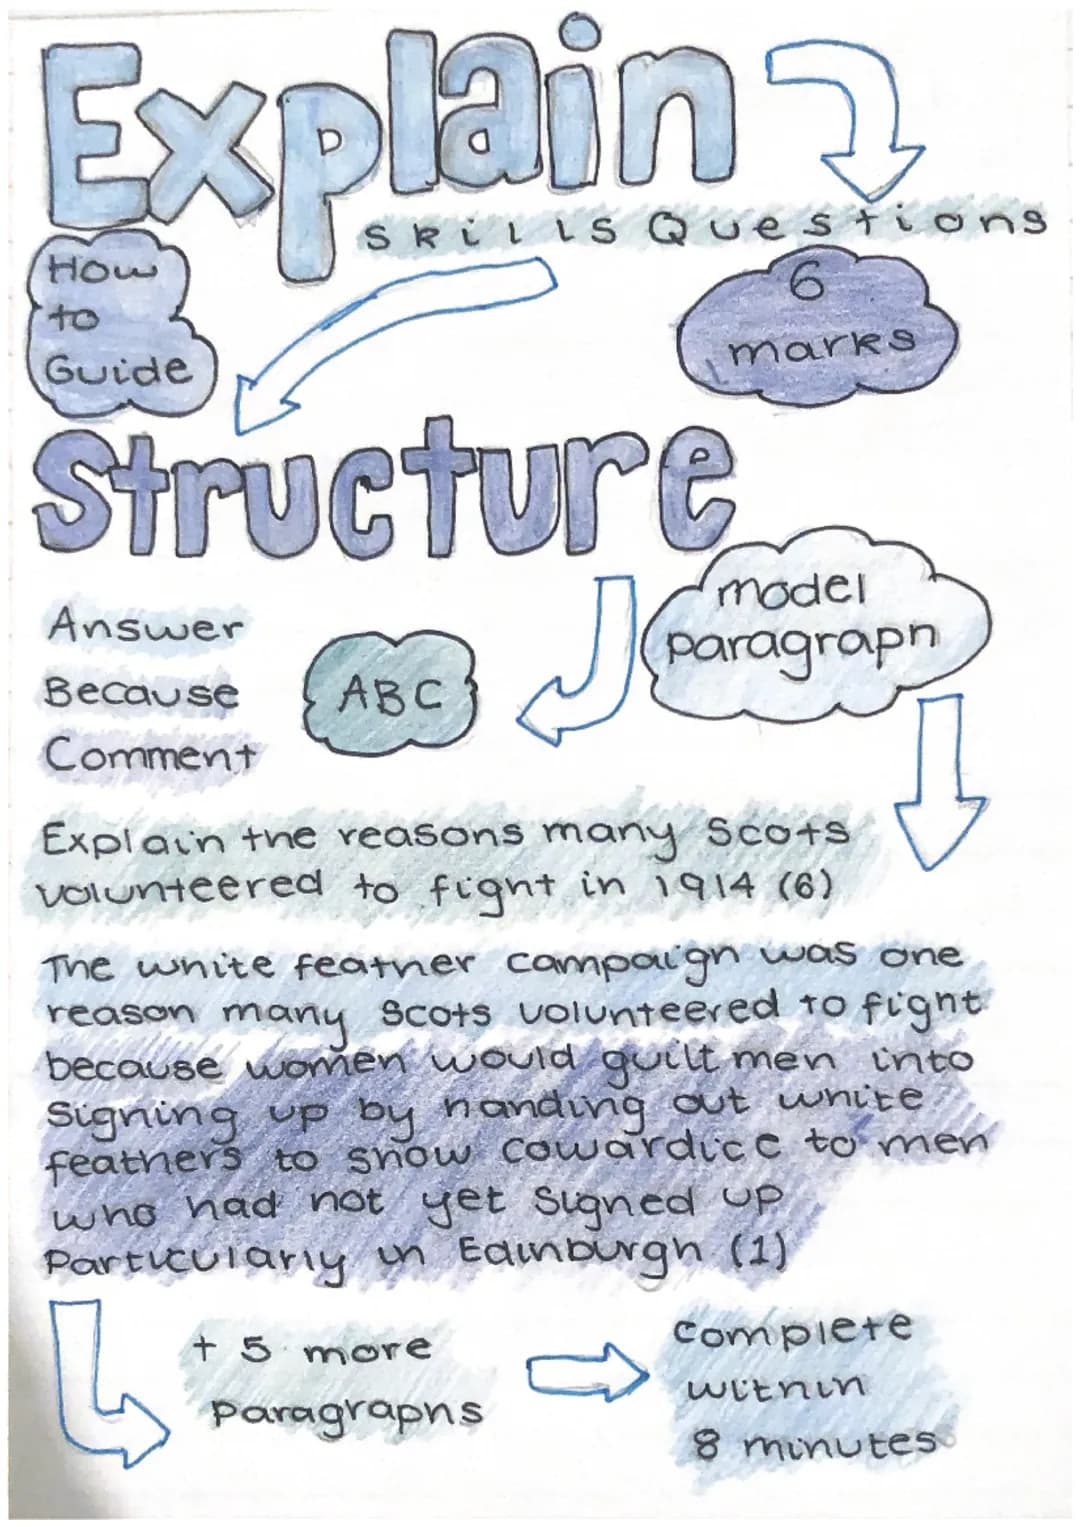 Explain
Skills Questions
How
to
Guide
6
marks
Structure
model
paragraph
Answer
Because
Comment
ABC
Explain the reasons many Scots
volunteered to fight in 1914 (6)
The white feather campaign was one
reason many Scots volunteered to fight
because women would guilt men into
signing up by handing out white
feathers to show cowardice to men
who had not yet signed up
Particularly in Edinburgh (1)
+ 5 more
paragraphs
complete
within
8 minutes